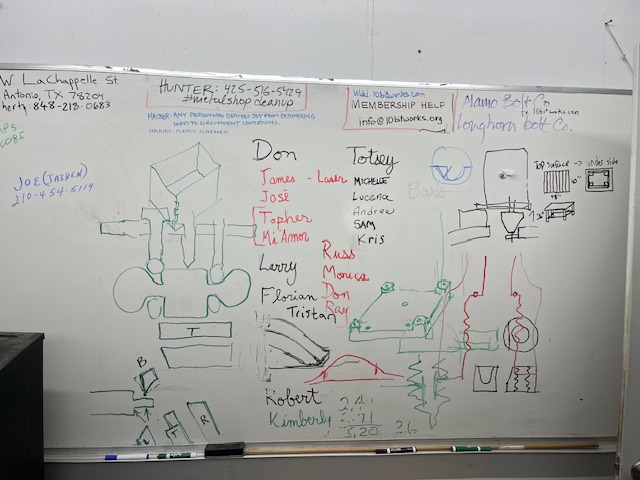 W. LaChappelle St.
Antonio, TX 78204
herty: 848-218-0683
HUNTER: 425-516-5429
#metalshop cleanup
HACKER: ANY PERSON WHO DERIVES JOY FROM DISCOVERING
WAYS TO CIRCUMVENT LIMITATIONS.
HACKING: PLAYFUL CLEVERNESS
Wiki.10bitworks.com
MEMBERSHIP HELP
info@10bitworks.org
Alamo Bolt Co.
Longhorn bolt Co.
JOE (JAIDEN)
210-454-5119
Don
James - Laser
José
Topher
Mi Amor
Larry
Florian
Tristan
Russ
Monica
Don
Ray
Robert
Kimberly
Totsey
MICHELLE
Luceria
Andrew
SAM
Kris
Bart
Top surface → under side
T
B
R
5,20
26